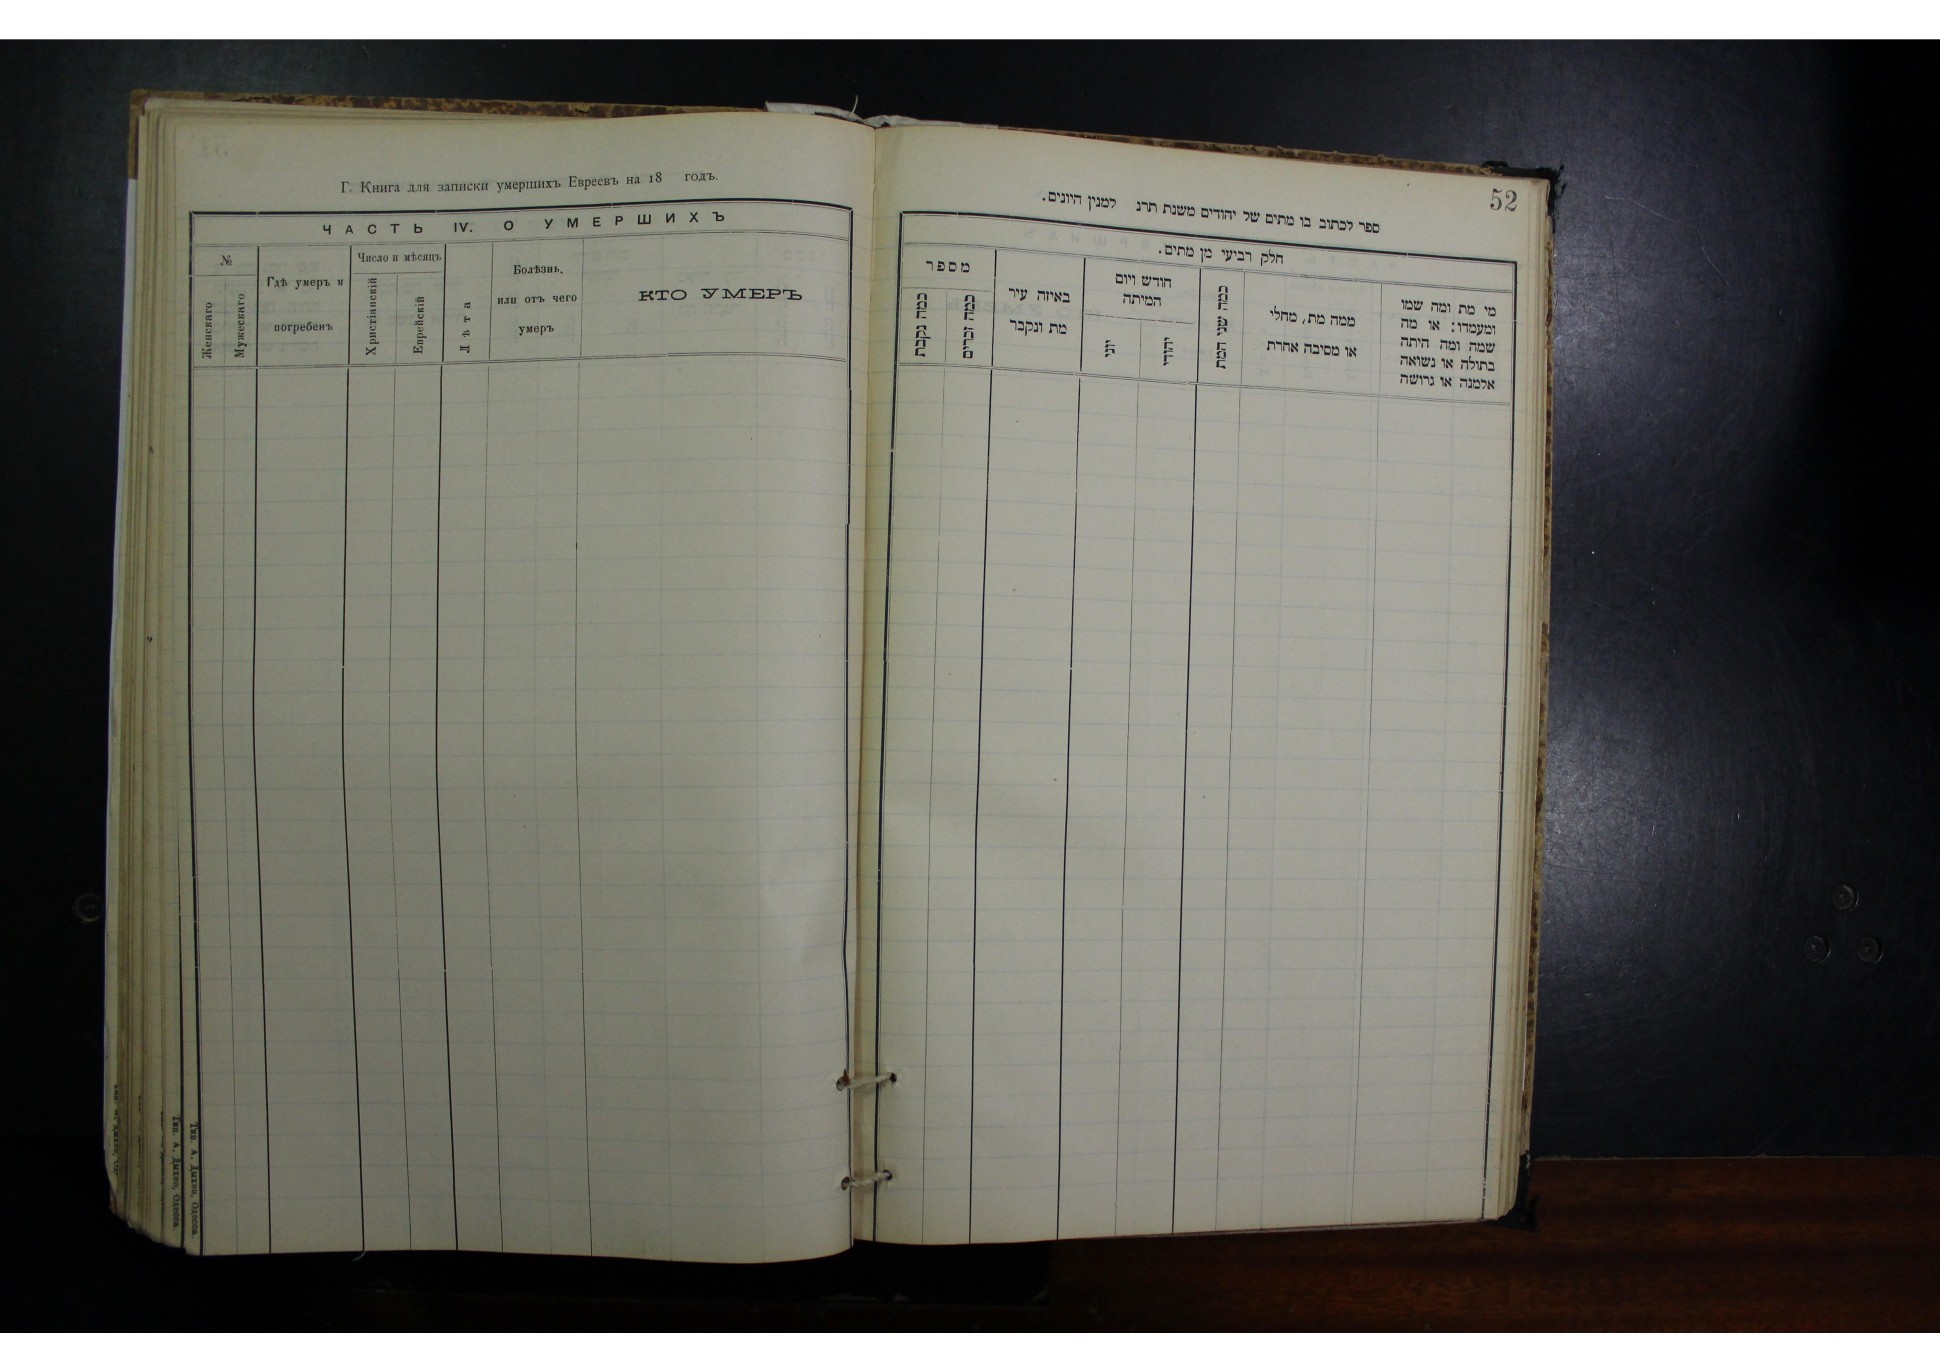 Г. Книга для записки умершихъ Евреевъ на 18 годъ.
ЧАСТЬ IV. О УМЕРШИХЪ
№
Женскаго
Мужескаго
Гдѣ умеръ и
погребенъ
Число и мѣсяцъ
Христіанскій
Еврейскій
Лѣта
Болѣзнь,
или отъ чего
умеръ
КТО УМЕРЪ
Тип. А. Дыхно, Одесса.
Тип. А. Дыхно, Одесса.
52
ספר לכתוב בו מתים של יהודים משנת תרנ למנין היונים.
חלק רביעי מן מתים.
מי מת ומה שמו
ומעמדו: או מה
שמה ומה היתה
בתולה או נשואה
אלמנה או גרושה
ממה מת, מחלי
או מסיבה אחרת
כמה שני המת
חודש ויום
המיתה
יהודי
יוני
באיזה עיר
מת ונקבר
מספר
כמה זכרים
כמה נקבת